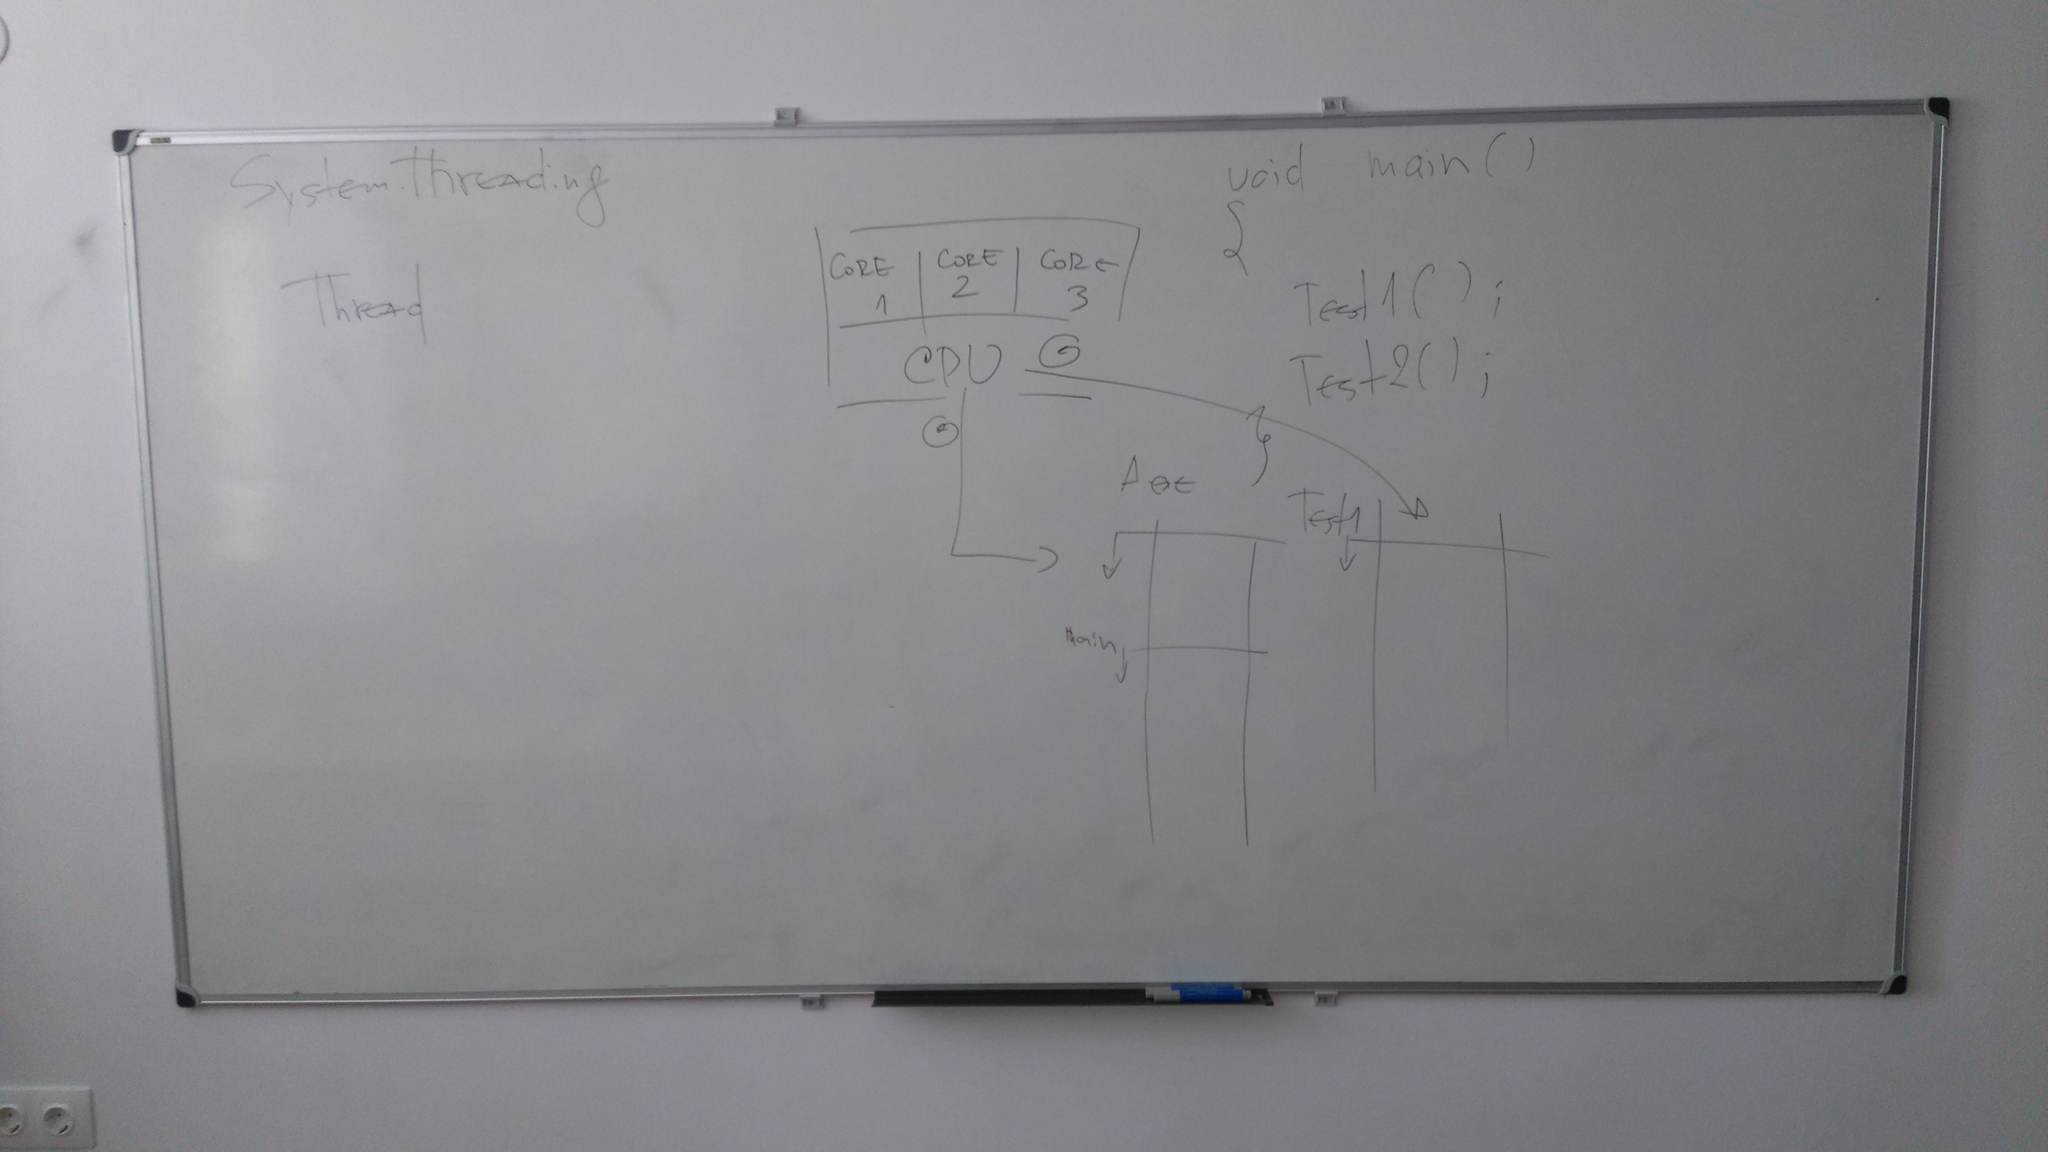 System.Threading
Thread
CORE 1
CORE 2
CORE 3
CPU
void main()
{
Test1();
Test2();
}
Test1
Main